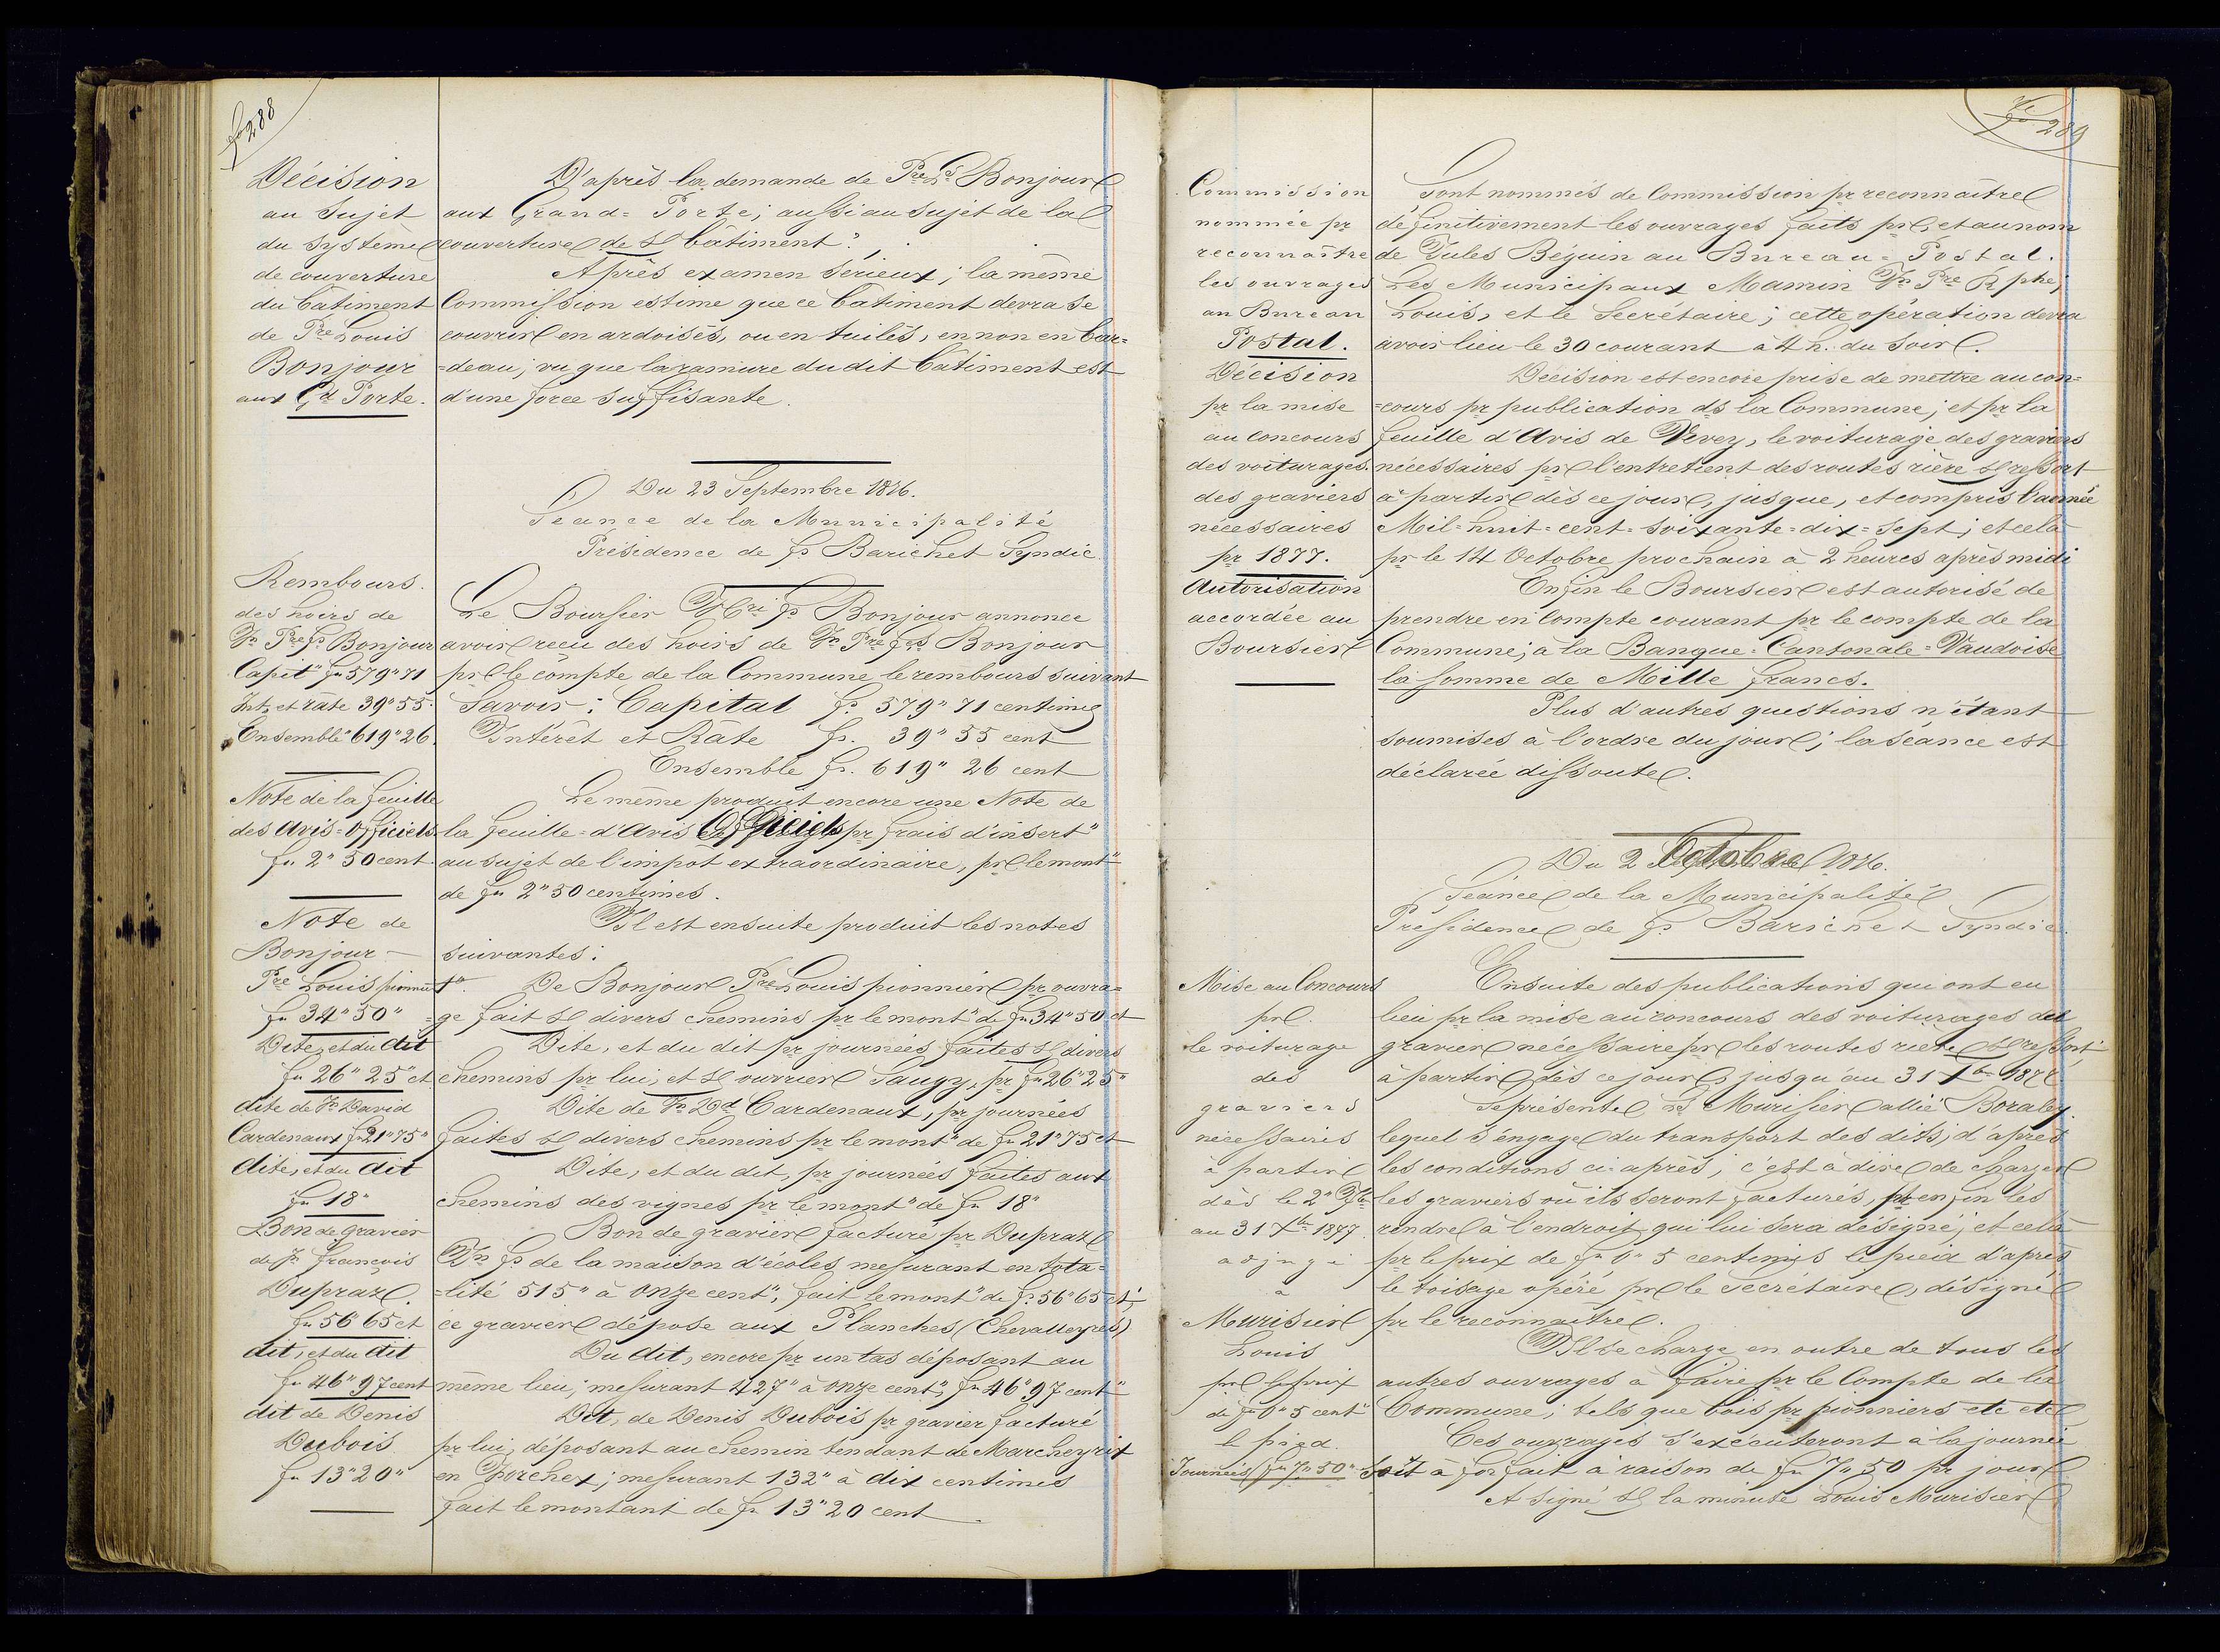 fo 288
Décision
au Sujet
du Système
de couverture
du Bâtiment
de Pre Louis
Bonjour
aux Gd Porte.
D'après la demande de Pre Ls Bonjour
aux Grand=Porte; aussi au sujet de la
couverture de st bâtiment".
Après examen sérieux; la même
Commission estime que ce bâtiment devra se
couvrir en ardoises, ou en tuiles, en non en bar=
=deau, vu que la ramure du dit bâtiment est
d'une force suffisante.
Du 23 Septembre 1876.
Séance de la Municipalité
Présidence de fs Barichet Syndic
Rembours.
des hoirs de
Jn Pre fs Bonjour
Capit" fr 579"71
Int, et râte 39"55.
Ensemble "619"26.
Le Boursier Hri fs Bonjour annonce
avoir reçu des hoirs de Jn Pre fçs Bonjour
pr le compte de la Commune le rembours suivant
Savoir: Capital fr. 579"71 centimes
Intérêt et Râte fr. 39"55 cent
Ensemble fr. 619"26 cent
Note de la feuille
des Avis=Officiels.
fr. 2"50 cent.
Le même produit encore une Note de
la feuille=d'Avis Officiels pr frais d'insert"
au sujet de l'impôt extraordinaire, pr le mont"
de fr 2"50 centimes.
Il est ensuite produit les notes
suivantes:
Note de
Bonjour
Pre Louis pionnier
fr 34"50"
1o. De Bonjour Pre Louis pionnier pr ouvra=
=ge fait st divers chemins pr le mont" de fr 34"50 ct
Dite, et du dit
fr 26"25" ct
Dite, et du dit pr journées faites st divers
chemins pr lui, et st ouvrier Saugy, pr fr 26"25"
dite de Jn David
Cardenaux fr 21"75"
Dite de Jn Dd Cardenaux, pr journées
faites st divers chemins pr le mont" de fr 21"75 ct
dite, et du dit
fr 18"
Dite, et du dit, pr journées faites aux
chemins des vignes pr le mont" de fr 18"
Bon de gravier
de Jn François
Dupraz.
fr 56"65 ct
Bon de gravier facturé pr Dupraz
Jn fs de la maison d'école, mesurant en tota=
=lité 515" à onze cent", fait le mont" de fr. 56"65 ct;
ce gravier déposé aux Planches (Chevalleyres)
dit, et du dit
fr 46"97 cent
Du dit, encore pr un tas déposant au
même lieu; mesurant 427" à onze cent", fr 46"97 cent"
dit de Denis
Dubois
fr 13"20"
Dit, de Denis Dubois pr gravier facturé
pr lui, déposant au chemin tendant de Marcheyrix
en Thorchex; mesurant 132" à dix centimes
fait le montant de fr 13"20 cent
fo 289
Commission
nommée pr
reconnaître
les ouvrages
au Bureau
Postal.
Sont nommés de Commission pr reconnaître
définitivement les ouvrages faits pr, et au nom
de Jules Béguin au Bureau=Postal.
Les Municipaux Mamin Jn Pre Rphe;
Louis, et le Secrétaire; cette opération devra
avoir lieu le 30 courant à 4 h. du soir.
Décision
pr la mise
au concours
des voiturages.
des graviers
nécessaires
pr 1877.
Décision est encore prise de mettre au con=
=cours pr publication ds la Commune; et pr la
feuille d'Avis de Vevey, le voiturage des graviers
nécessaires pr l'entretient des routes rière st ressort
à partir dès ce jour, jusque, et compris l'année
Mil=huit=cent=soixante=dix=sept; et celà
pr le 14 Octobre prochain à 2 heures après midi
Autorisation
accordée au
Boursier
Enfin le Boursier est autorisé de
prendre en Compte courant pr le compte de la
Commune; à la Banque=Cantonale=Vaudoise
la somme de Mille francs.
Plus d'autres questions n'étant
soumises à l'ordre du jour; la séance est
déclarée dissoute.
Du 2 Octobre 1876.
Séance de la Municipalité
Présidence de fs Barichet Syndic.
Mise au Concours
pr
le voiturage
des
graviers
nécessaires
à partir
dès le 2"
au 31 Xbre 1877.
adjugé
à
Murisier
Louis
pr le prix
de fr 0"5 cent"
le pied.
Journées fr 7"50"
Ensuite des publications qui ont eu
lieu pr la mise au concours des voiturages de
gravier nécessaire pr les routes rière st ressort
à partir dès ce jour, jusqu'au 31 Xbre 1877.
Se présente, Ls Murisier allié Boraley.
lequel s'engage du transport des dits, d'après
les conditions ci-après; c'est à dire de charger
les graviers où ils seront facturés, pr enfin les
rendre à l'endroit qui lui sera désigné; et celà
pr le prix de fr 0"5 centimes le pied d'après
le toisage opéré pr le Secrétaire, désigné
pr le reconnaître.
Il se charge en outre de tous les
autres ouvrages à faire pr le Compte de la
Commune; tels que bois pr pionniers etc etc
Ces ouvrages s'exécuteront à la journée
soit à forfait à raison de fr 7"50 pr jour
A signé st la minute Louis Murisier